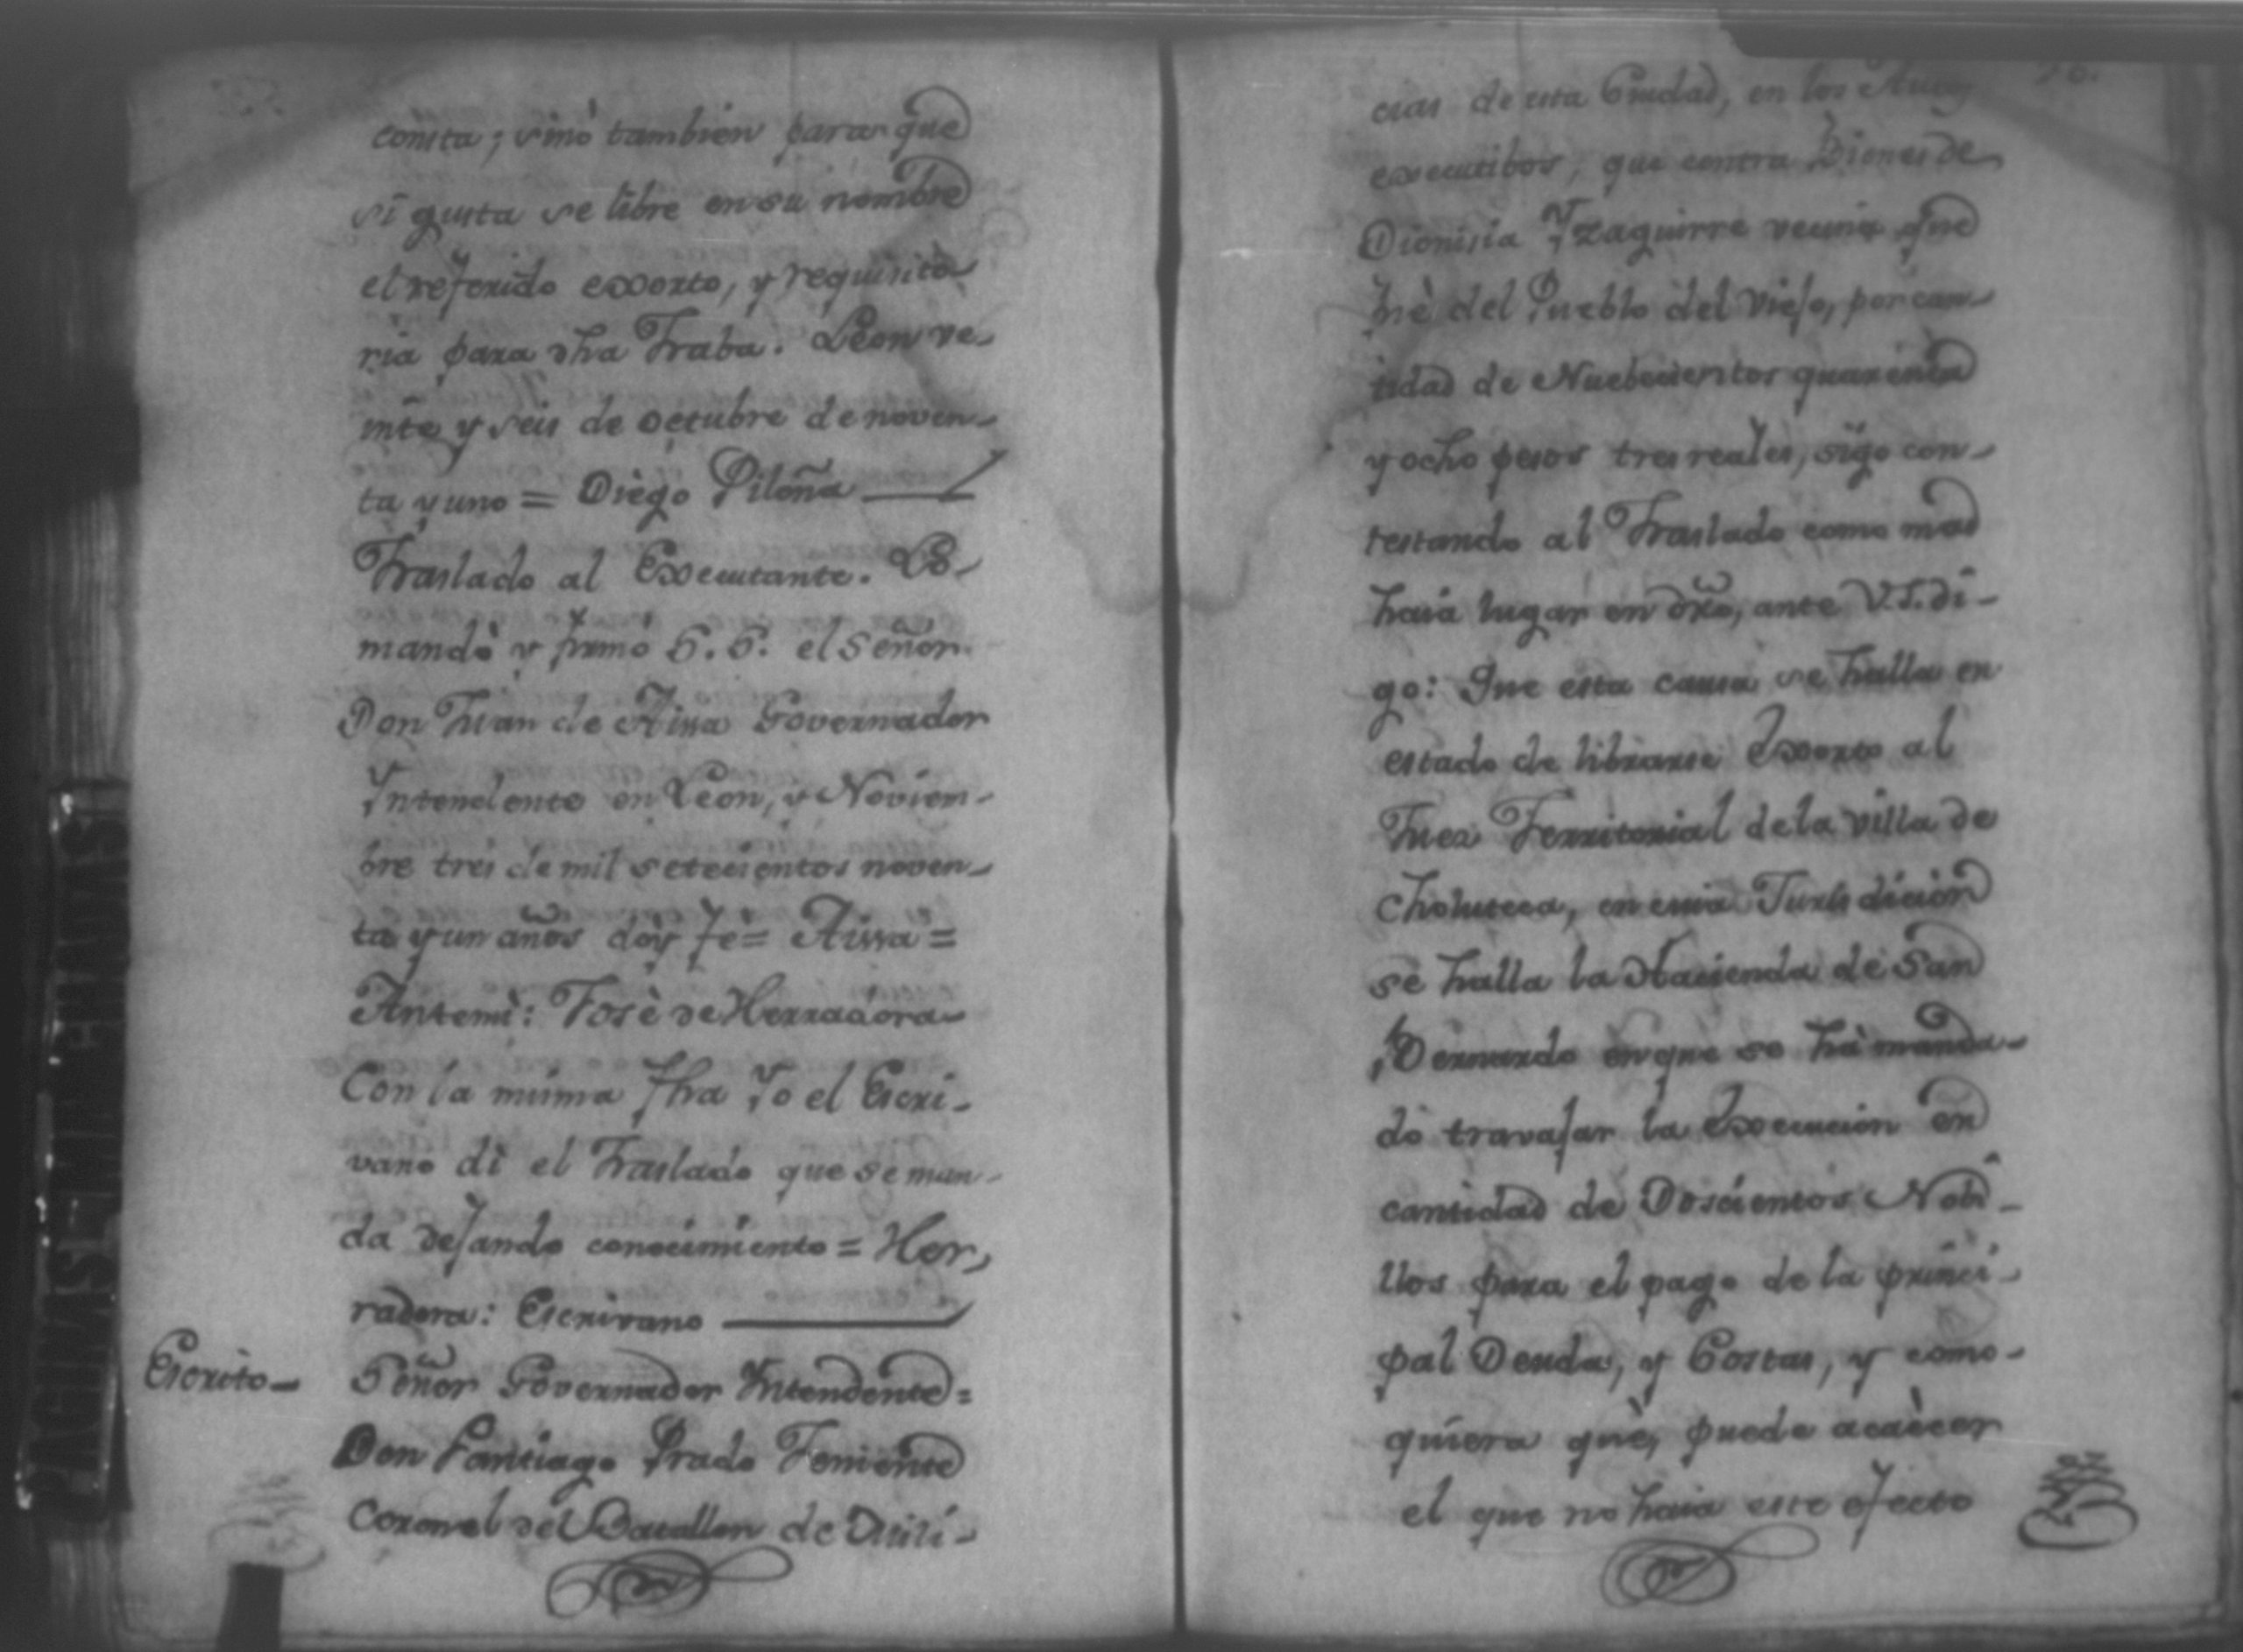 consta; sinò tambien para que
si gusta se libre en su nombre
el referido exorto, y requisito-
ria para dha Traba. Leon ve-
inte y seis de octubre de noven-
ta y uno = Diego Piloña
Traslado al Executante. Lo
mandò y firmó S.S. el Señor
Don Juan de Aissa Governador
Yntendente en Leon, y Noviem-
bre tres de mil setecientos noven-
ta y un años doy fè = Aissa =
Antemì: Josè de Herradora
Con la misma fha Yo el Escri-
vano dì el Traslado que se man-
da dejando conocimiento = Her,
radora: Escrivano
Escrito
Señor Governador Intendente =
Don Santiago Prado Teniente
Coronel del Batallon de Mili-
cias de esta Ciudad, en los Autos
executibos, que contra Bienes de
Dionisia Yzaguirre vecina que
fuè del Pueblo del Viejo, por can-
tidad de Nuebecientos quarenta
y ocho pesos tres reales, sigo con-
testando al Traslado como mas
haia lugar en dro, ante V.S. di-
go: Que esta causa se halla en
estado de librarse Exorto al
Juez Territorial de la villa de
Choluteca, en cuia Jurisdicion
se halla la Hacienda de San
Bernardo en que se hà manda-
do travajar la Execucion en
cantidad de Doscientos Nobi-
llos para el pago de la princi-
pal Deuda, y Costas, y como-
quiera què, puede acaècer
el que no haia este efecto